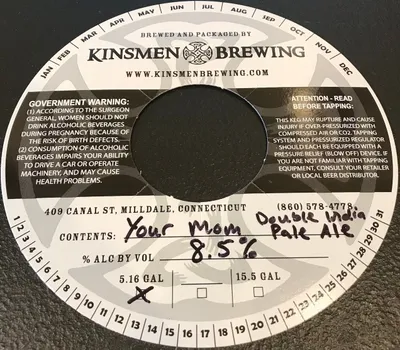 JAN FEB MAR APR MAY JUN JUL AUG SEP OCT NOV DEC
BREWED AND PACKAGED BY
KINSMEN BREWING
WWW.KINSMENBREWING.COM
GOVERNMENT WARNING:
(1) ACCORDING TO THE SURGEON
GENERAL, WOMEN SHOULD NOT
DRINK ALCOHOLIC BEVERAGES
DURING PREGNANCY BECAUSE OF
THE RISK OF BIRTH DEFECTS.
(2) CONSUMPTION OF ALCOHOLIC
BEVERAGES IMPAIRS YOUR ABILITY
TO DRIVE A CAR OR OPERATE
MACHINERY, AND MAY CAUSE
HEALTH PROBLEMS.
ATTENTION - READ
BEFORE TAPPING:
THIS KEG MAY RUPTURE AND CAUSE
INJURY IF OVER-PRESSURIZED WITH
COMPRESSED AIR OR CO2. TAPPING
SYSTEM AND PRESSURE REGULATOR
SHOULD EACH BE EQUIPPED WITH A
PRESSURE RELIEF (BLOW OFF) DEVICE. IF
YOU ARE NOT FAMILIAR WITH TAPPING
EQUIPMENT, CONSULT YOUR RETAILER
OR LOCAL BEER DISTRIBUTOR.
409 CANAL ST, MILLDALE, CONNECTICUT (860) 578-4778
CONTENTS: Your Mom Double India
Pale Ale
% ALC BY VOL 8.5%
5.16 GAL 15.5 GAL
X
1 2 3 4 5 6 7 8 9 10 11 12 13 14 15 16 17 18 19 20 21 22 23 24 25 26 27 28 29 30 31